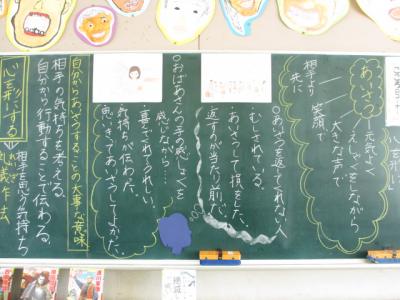 あいさつ
元気よく
えしゃくをしながら
大きな声で
笑顔で
相手より
先に
○あいさつを返してくれない人
・むしされている。
・あいさつして損をした。
・返すのが当たり前だ。
○おばあさんの手の感しょくを
感じながら…
・喜んでくれてうれしい。
・気持ちが伝わった。
・思いきってあいさつしてよかった。
自分からあいさつすることの大事な意味
相手の気持ちを考える。
自分から行動することで伝わる。
心を形にする
相手を思いやる気持ち
礼儀作法